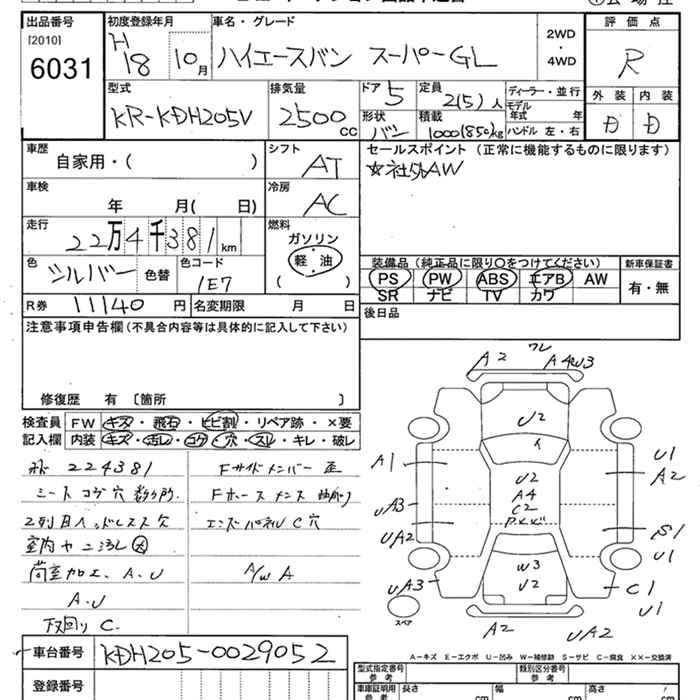 出品番号
[2010]
6031
初度登録年月
H 18 10月
車名・グレード
ハイエースバン スーパーGL
2WD
・
4WD
評価点
R
外装 内装
D D
型式
KR-KDH205V
排気量
2500 CC
ドア 5
定員 2(5)人
形状 バン
積載 1000(850)kg
ディーラー・並行
モデル
年式 年
ハンドル 左・右
車歴
自家用・( )
シフト
AT
セールスポイント(正常に機能するものに限ります)
☆社外AW
車検
年 月( 日)
冷房
AC
走行
22万4千381km
燃料
ガソリン
・
軽油
( )
色
シルバー 色替
色コード
1E7
装備品(純正品に限り○をつけてください)
PS PW ABS エアB AW
SR ナビ TV カワ
新車保証書
有・無
R券 11140円
名変期限 月 日
後日品
注意事項申告欄(不具合内容等は具体的に記入して下さい)
修復歴 有〔箇所 〕
検査員 FW キズ・飛石・ヒビ割・リペア跡・×要
記入欄 内装 キズ・汚レ・コゲ・穴・スレ・キレ・破レ
224381
シートコゲ穴数ヶ所
室内ヤニ汚レ大
荷室加工、A.U
A.U
下回りC
Fサイドメンバー歪
エンドパネルC穴
A/W A
A2
A4W3
U2
A1
U2
A4
C2
U1
A2
UA3
UA2
S1
U1
W3
U2
UA3
C1
U1
スペア
A2
UA2
A-キズ E-エクボ U-凹み W-補修跡 S-サビ C-腐食 ××-交換済
車台番号 KDH205-0029052
登録番号
型式指定番号
参考
類別区分番号
参考
車庫証明用
参考
長さ cm
幅 cm
高さ cm